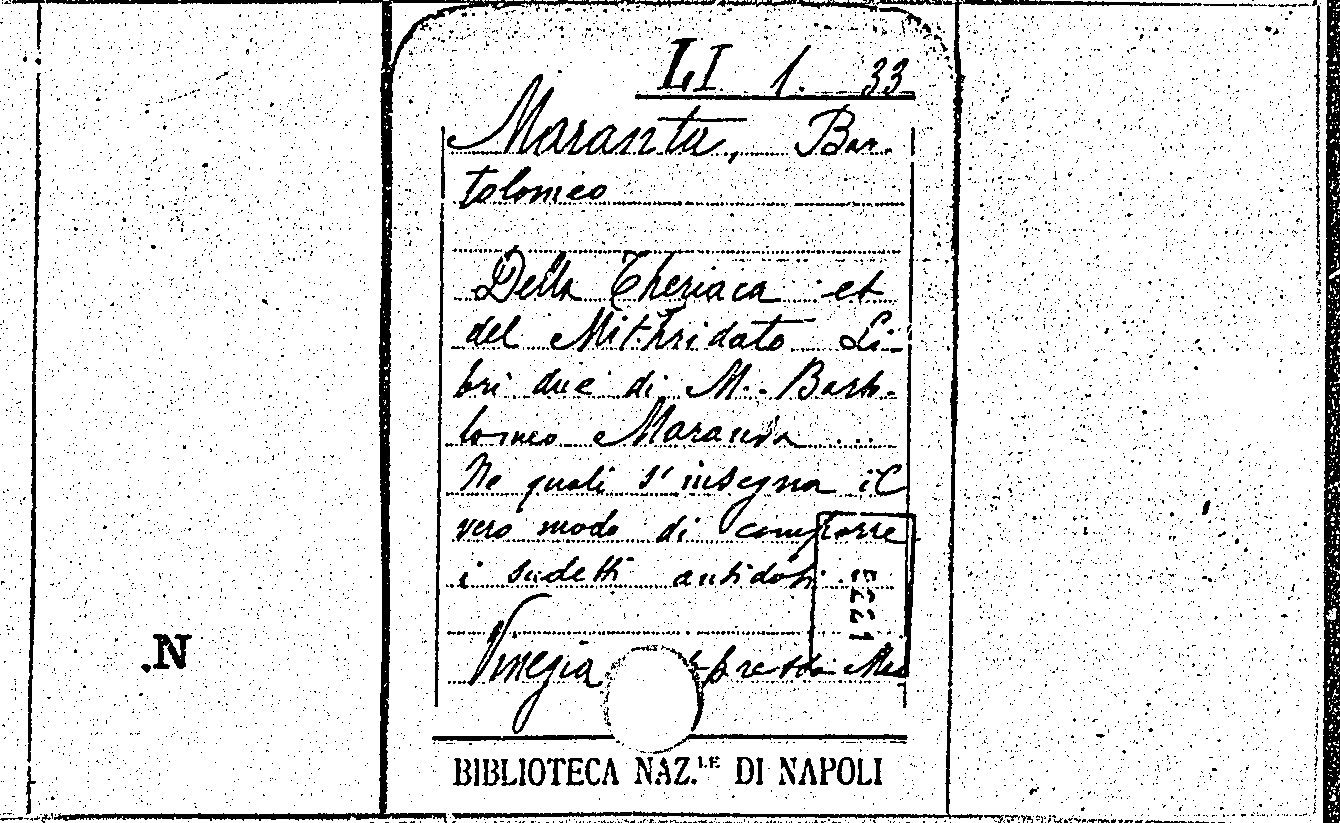 LI 1. 33
Maranta, Bar-
tolomeo
Della Theriaca et
del Mithridato Li-
bri due di M. Barto-
lomeo Maranta ...
Ne quali s'insegna il
vero modo di comporre
i sudetti antidoti.
Vinegia appresso
BIBLIOTECA NAZ.LE DI NAPOLI
.N